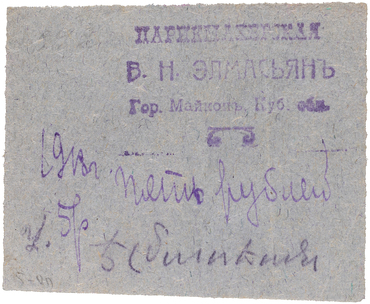 ПАРИКМАХЕРСКАЯ
В. Н. ЭЛМАСЬЯНЪ
Гор. Майкопъ, Куб. обл.
191 г. пять рублей
5р